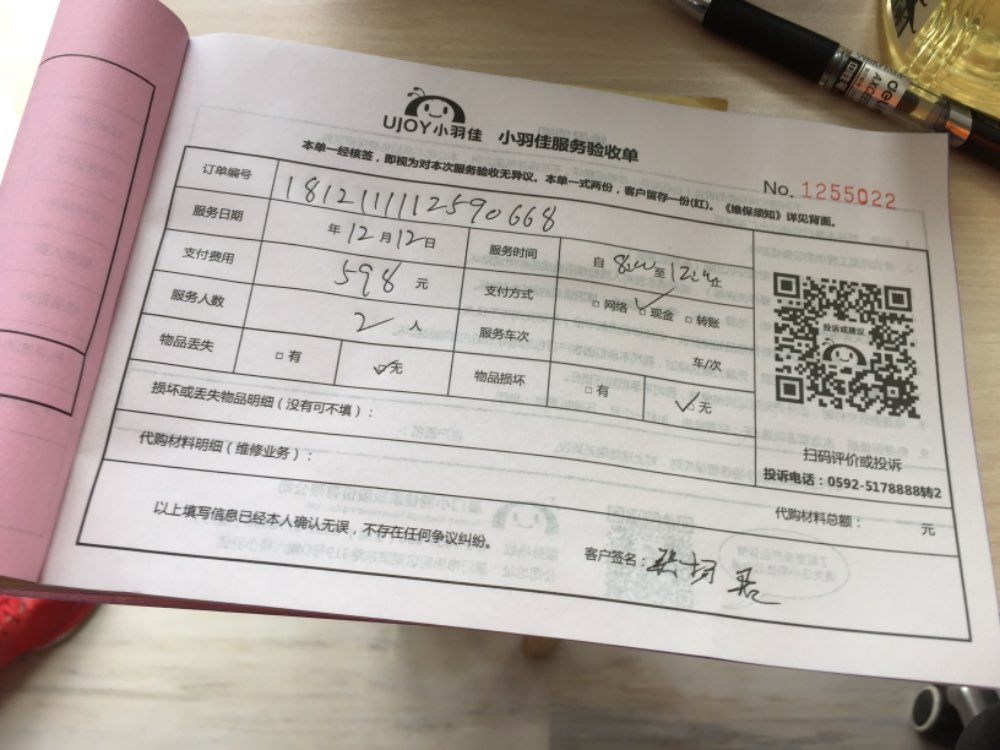 UJOY小羽佳 小羽佳服务验收单
No. 1255022
本单一经核签，即视为对本次服务验收无异议。本单一式两份，客户留存一份(红)。《维保须知》详见背面。
订单编号 1812111112590668
服务日期 年12月12日 服务时间 自 至 止
支付费用 598 元 支付方式 □网络 ☑现金 □转账
服务人数 2 人 服务车次 车/次
物品丢失 □有 ☑无 物品损坏 □有 ☑无
投诉或建议
扫码评价或投诉
投诉电话：0592-5178888转2
损坏或丢失物品明细（没有可不填）：
代购材料明细（维修业务）：
代购材料总额： 元
以上填写信息已经本人确认无误，不存在任何争议纠纷。
客户签名：
deli